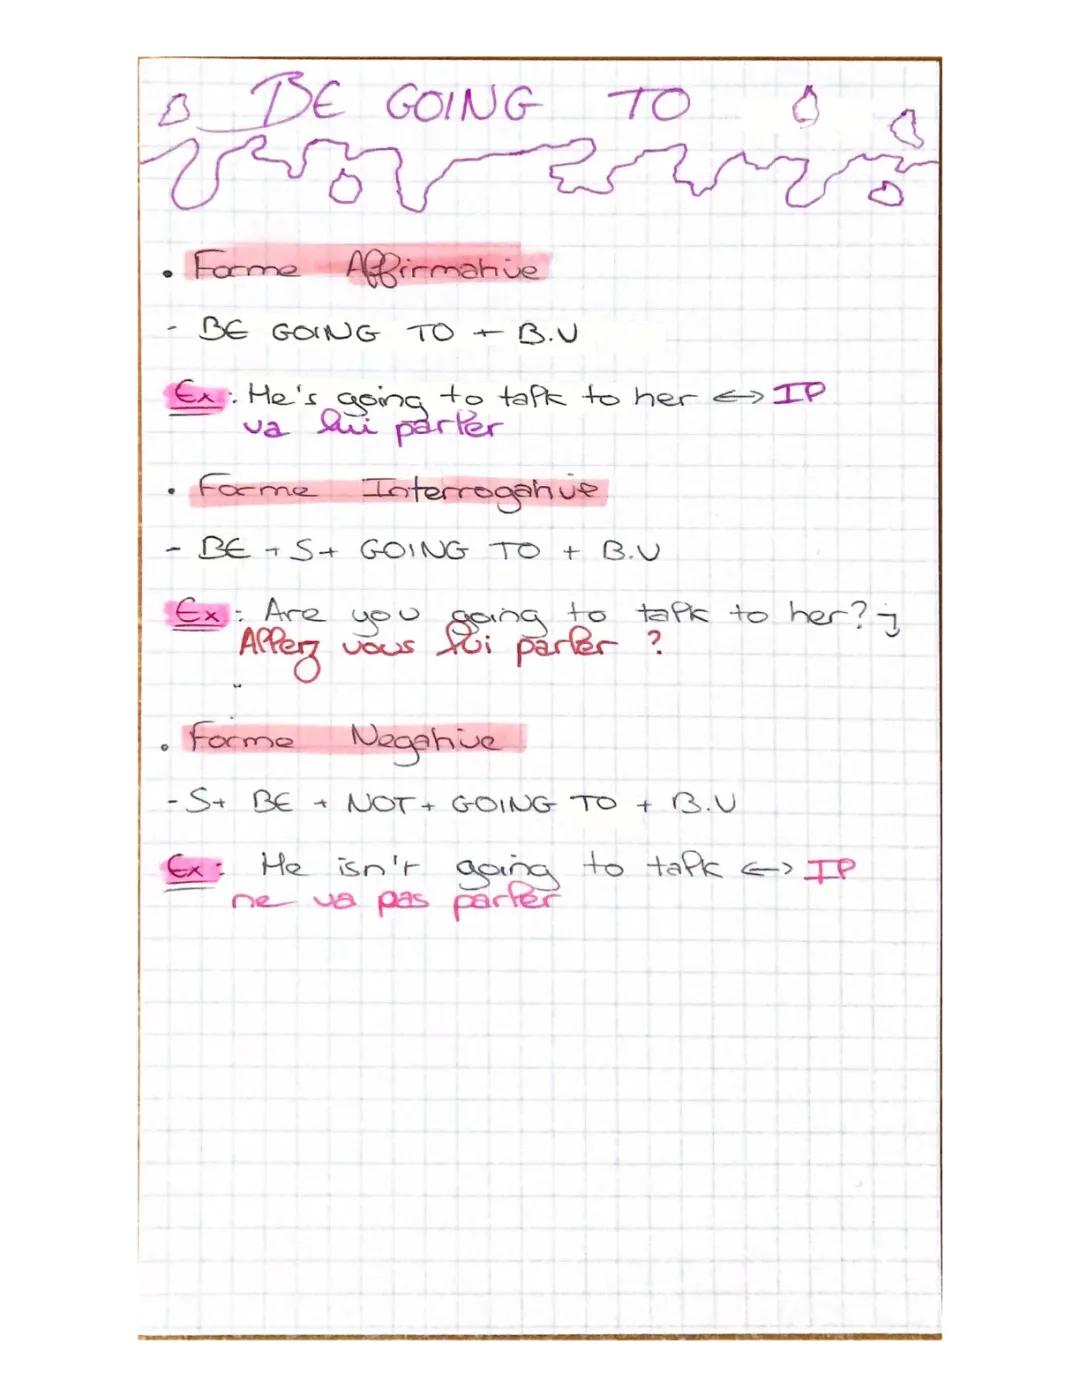 BE GOING TO
• Forme Affirmative
- BE GOING TO + B.V
Ex : He's going to talk to her <-> IP
va lui parler
• Forme Interrogative
- BE + S + GOING TO + B.V
Ex : Are you going to talk to her ? j
Allez vous lui parler ?
• Forme Negative
- S + BE + NOT + GOING TO + B.V
Ex : He isn't going to talk <-> IP
ne va pas parler